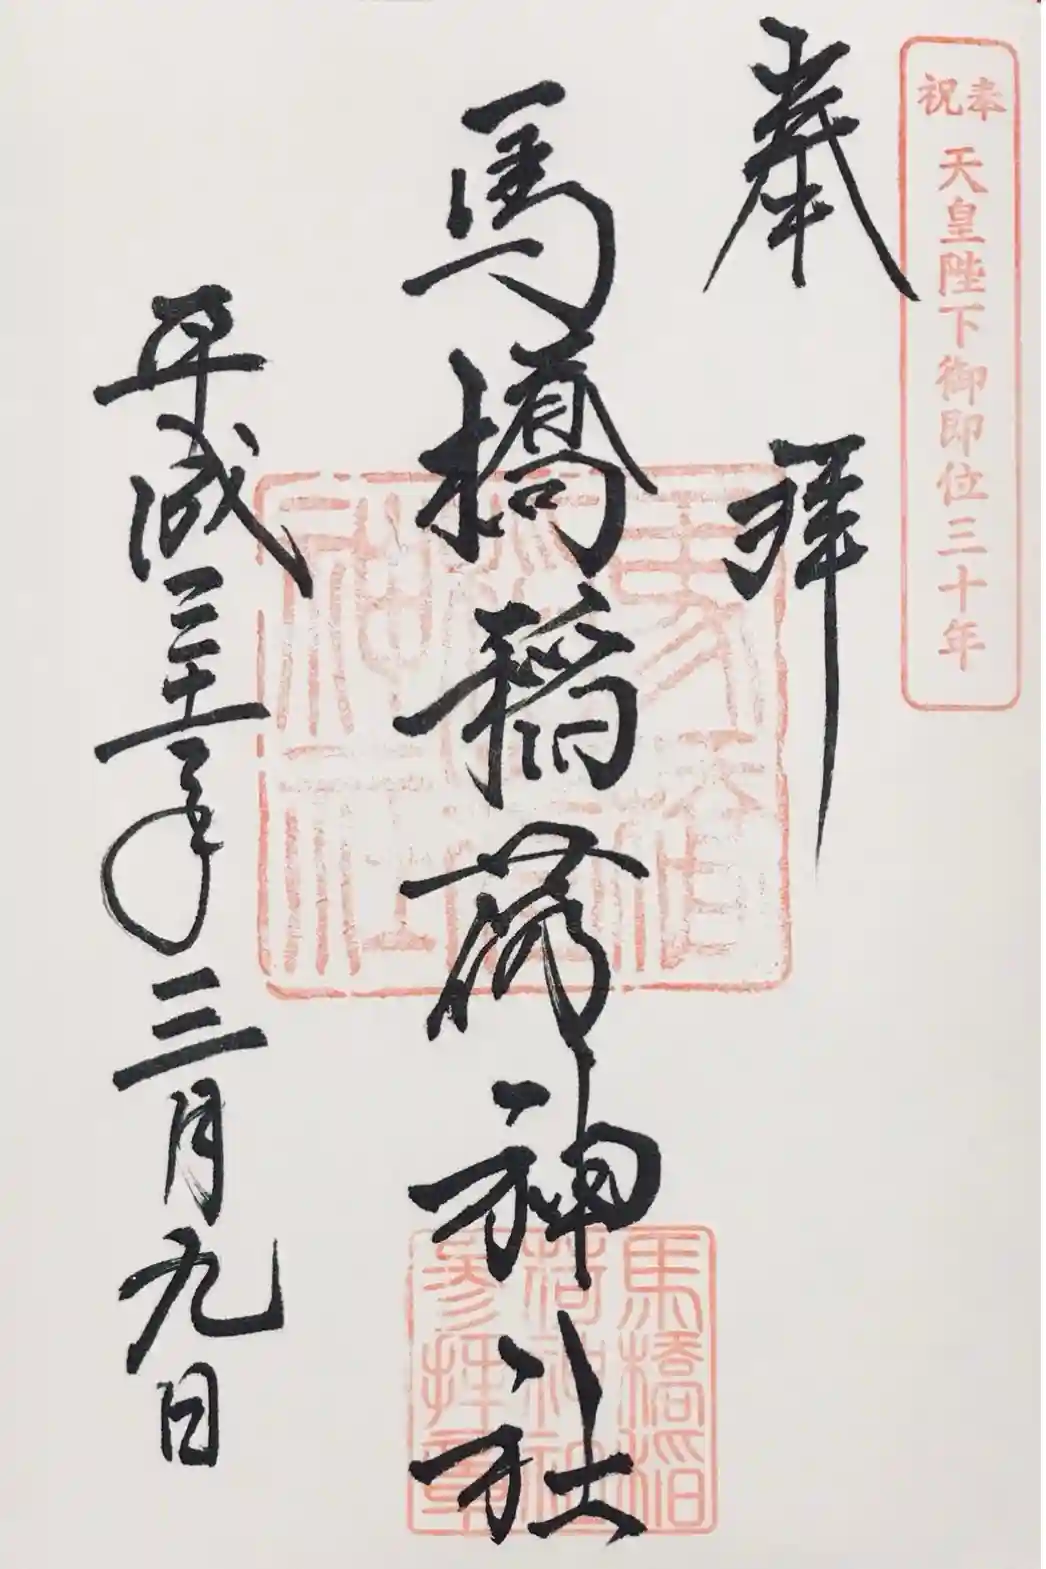 奉祝
天皇陛下御即位三十年
奉拝
馬橋稲荷神社
平成三十一年三月九日
馬橋稲荷神社
馬橋稲
荷神社
参拝章